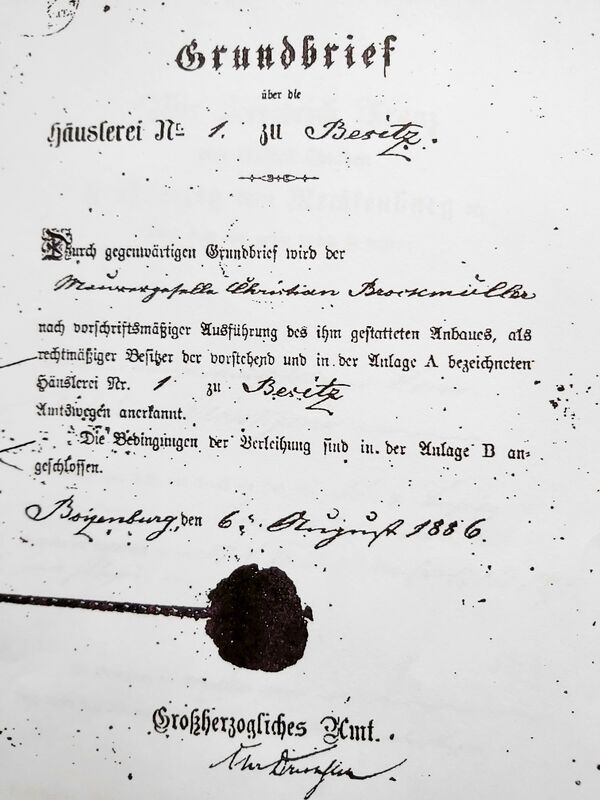 Grundbrief
über die
Häuslerei Nr. 1. zu Besitz.
Durch gegenwärtigen Grundbrief wird der
Maurergeselle Christian Brockmüller
nach vorschriftsmäßiger Ausführung des ihm gestatteten Anbaues, als
rechtmäßiger Besitzer der vorstehend und in der Anlage A bezeichneten
Häuslerei Nr. 1 zu Besitz
Amtswegen anerkannt.
Die Bedingungen der Verleihung sind in der Anlage B an-
geschlossen.
Boizenburg, den 6. August 1886.
Großherzogliches Amt.